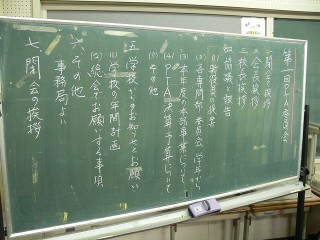 第一回PTA委員会
一、開会挨拶
二、会長挨拶
三、校長挨拶
四、協議と報告
(2)各専門部委員会、学年から
(3)本年度の本部事業について
(4)PTA決算、予算について
(5)その他
五、学校からのお知らせとお願い
(1)学校の年間計画
(2)総会でお願いする事項
六、その他
事務局より
七、閉会の挨拶